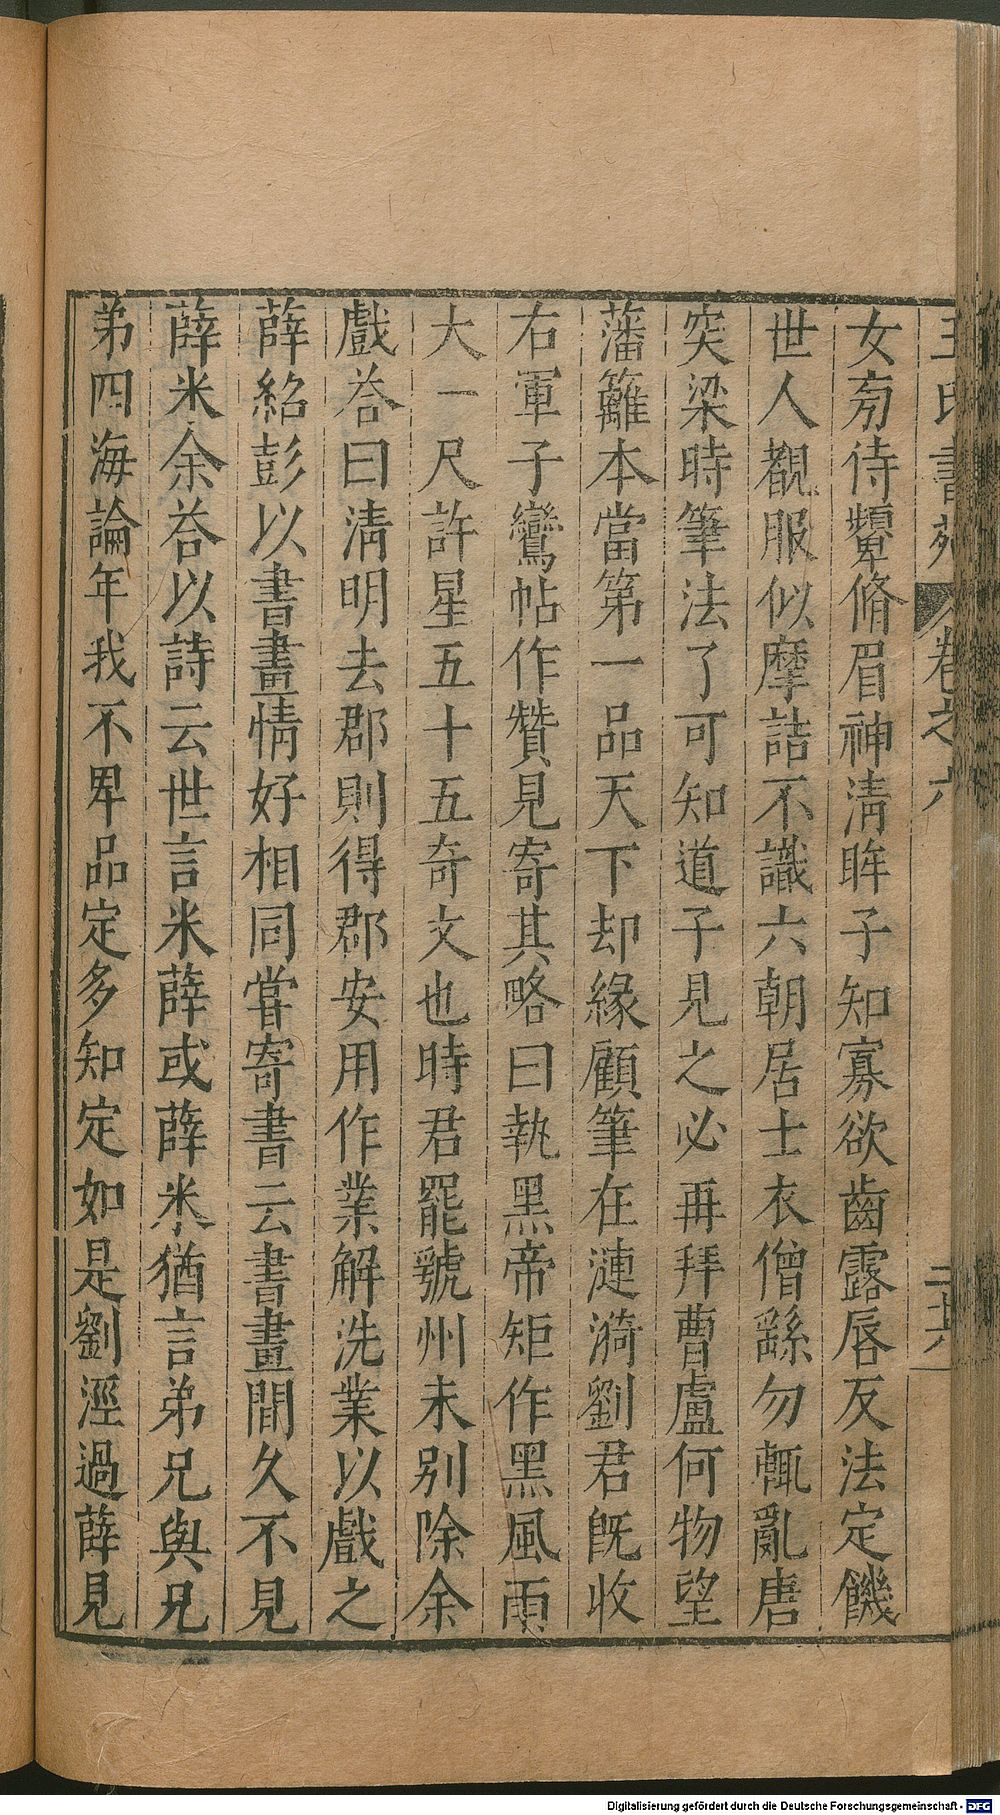 王氏書苑 卷之六 二十六
女旁侍顰脩眉神清眸子知寡欲齒露唇反法定饑
世人覩服似摩詰不識六朝居士衣僧繇勿輒亂唐
突梁時筆法了可知道子見之必再拜曹盧何物望
藩籬本當第一品天下却緣顧筆在漣漪劉君旣收
右軍子鸞帖作贊見寄其略曰執黑帝矩作黑風雨
大一尺許星五十五奇文也時君罷虢州未別除余
戲荅曰清明去郡則得郡安用作業解洗業以戲之
薛紹彭以書畫情好相同嘗寄書云書畫間久不見
薛米余荅以詩云世言米薛或薛米猶言弟兄與兄
弟四海論年我不卑品定多知定如是劉涇過薛見
Digitalisierung gefördert durch die Deutsche Forschungsgemeinschaft - DFG